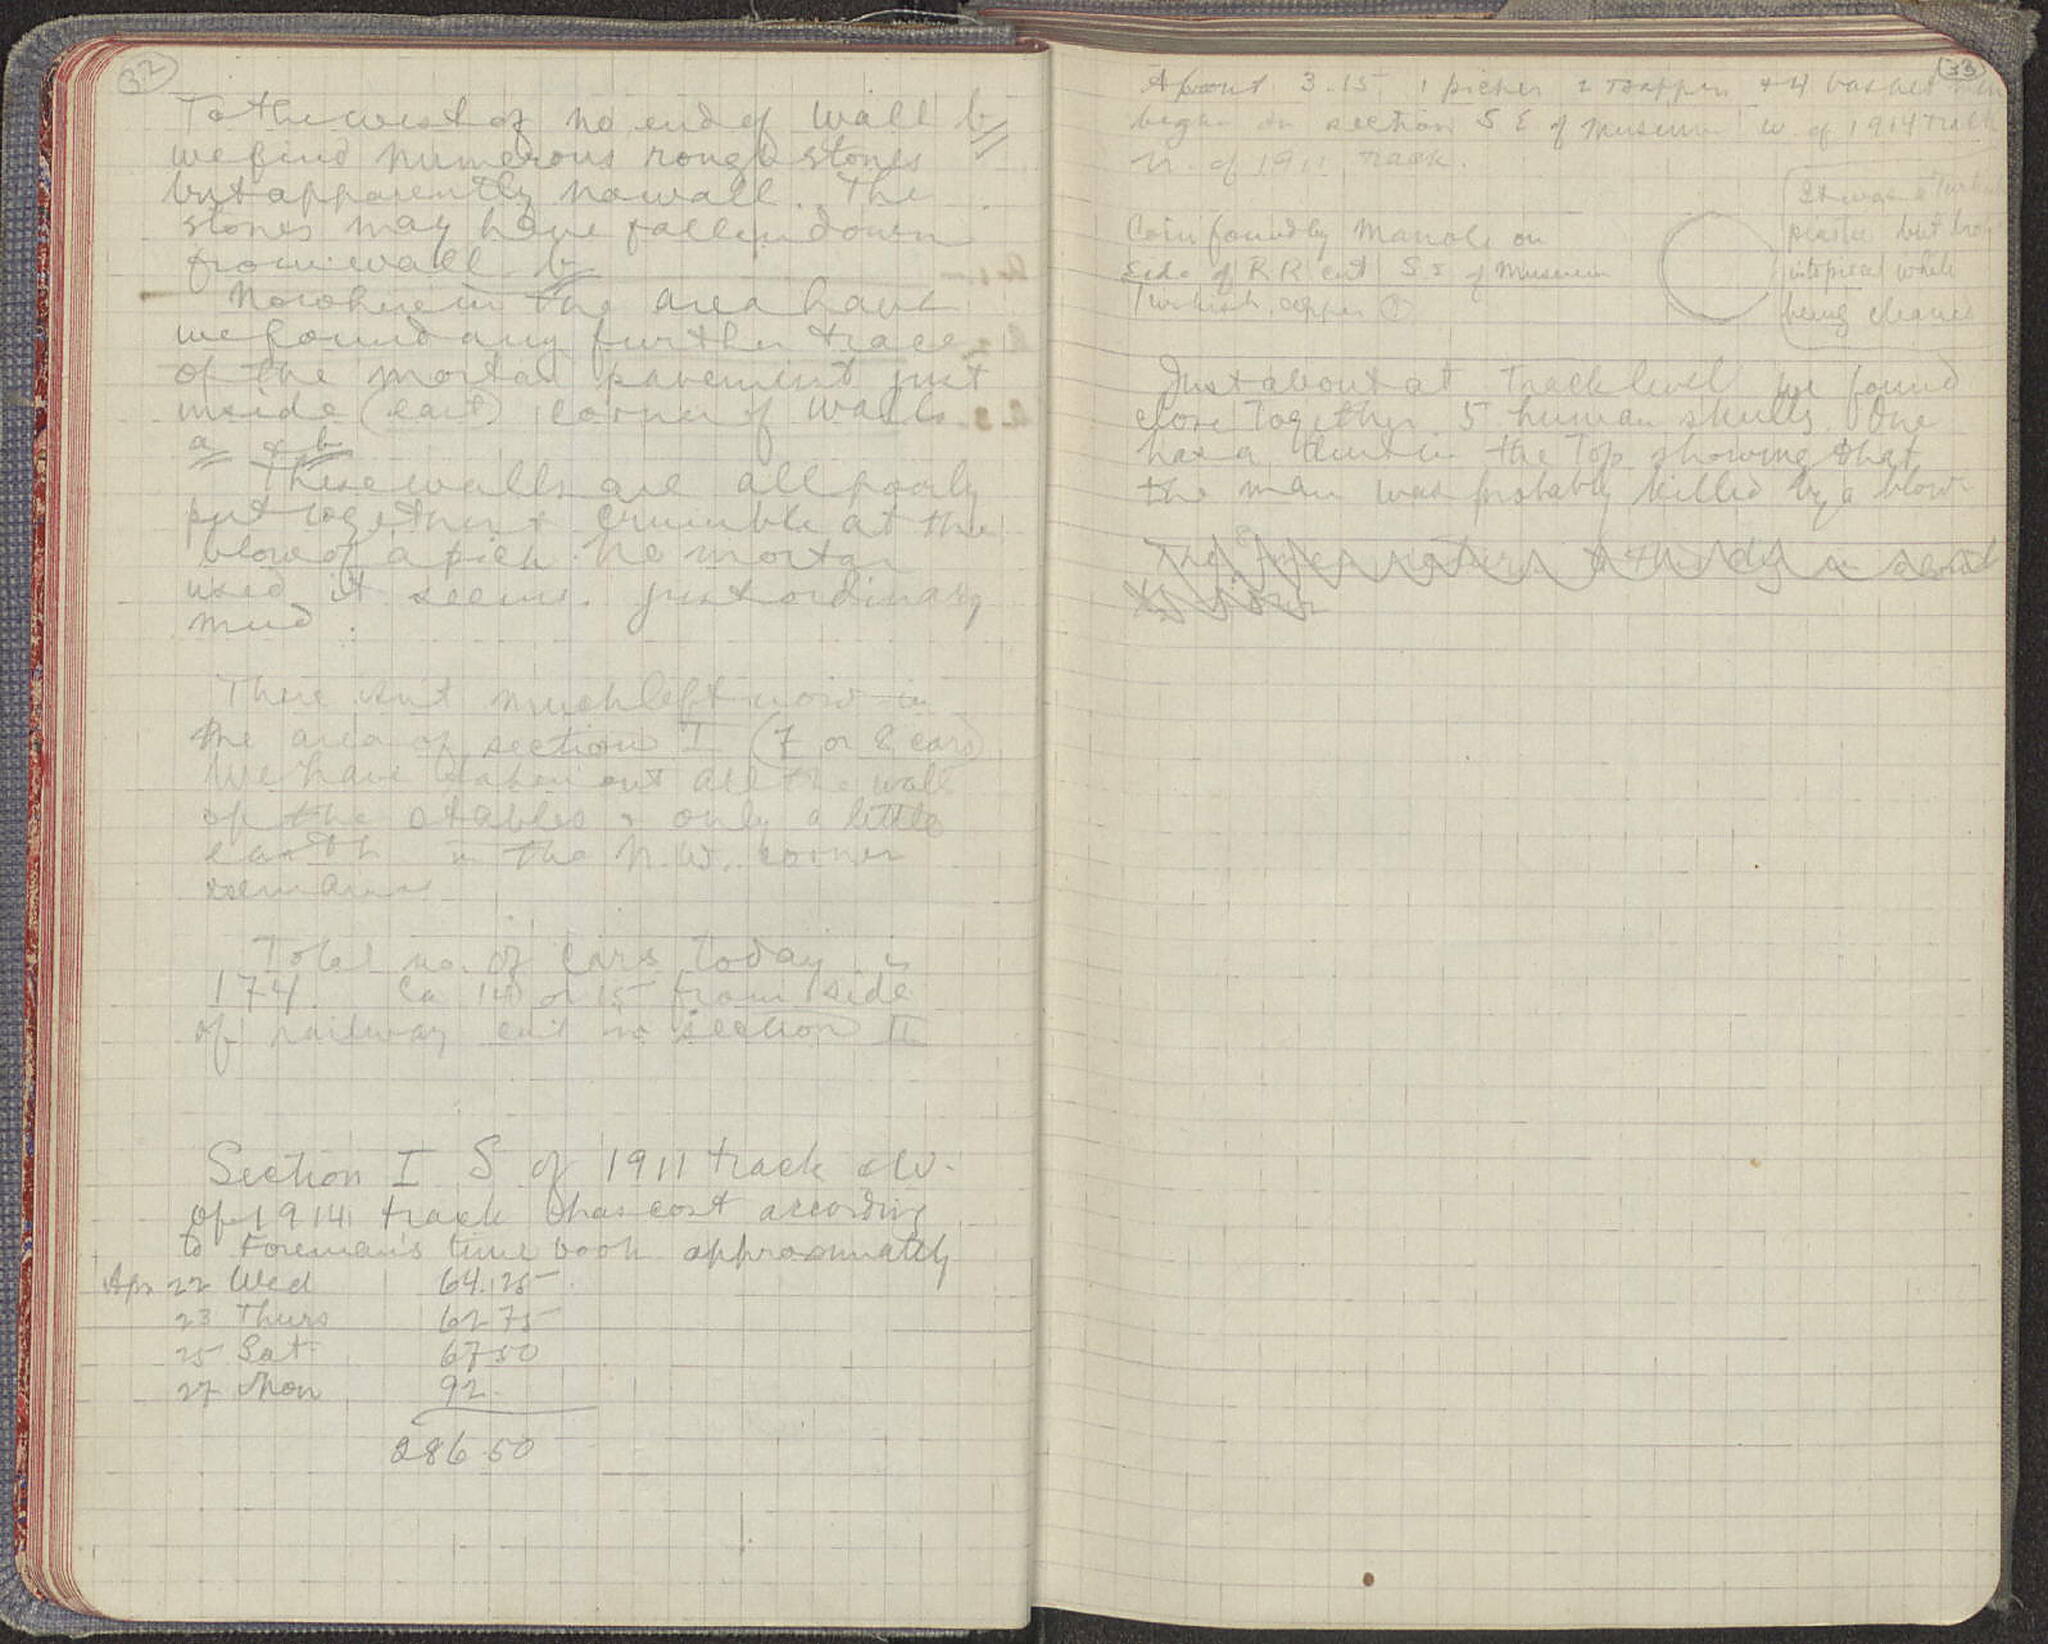 32
To the west of no end of wall b
we find numerous rough stones
but apparently no wall. The
stones may have fallen down
from wall b
Nowhere in the area have
we found any further trace
of the mortar pavement just
inside (east) corner of walls
a & b
These walls are all poorly
put together & crumble at the
blow of a pick. No mortar
used it seems. just ordinary
mud.
There isnt much left now in
the area of section I (7 or 8 cars)
We have taken out all the wall
of the stables & only a little
earth in the N.W. corner
remains
Total no. of cars today is
174. Ca 14 or 15 from side
of railway cut in section II
Section I S of 1911 track & W.
of 1914 track has cost according
to Foreman's time book approximately
Apr 22 Wed 64.25
23 Thurs 62 75
25 Sat 67 50
27 Mon 92.
286.50
33
About 3.15 1 picker 2 trappers & 4 basket men
began in section S E of Museum W. of 1914 track
N. of 1911 track.
Coin found by Manoli on
side of R R cut S E of Museum
Turkish copper
It was a Turkish
piastre but broke
into pieces while
being cleaned
Just about at track level we found
close together 5 human skulls. One
has a dent in the top showing that
the man was probably killed by a blow
The